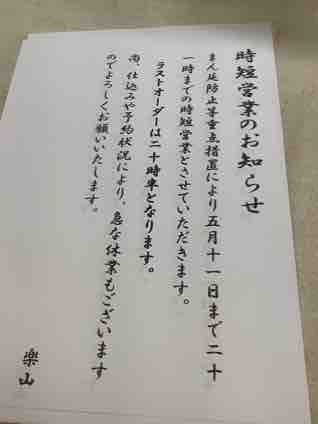 時短営業のお知らせ
まん延防止等重点措置により五月十一日まで二十
一時までの時短営業とさせていただきます。
ラストオーダーは二十時半となります。
尚、仕込みや予約状況により、急な休業もございます
のでよろしくお願いいたします。
楽山